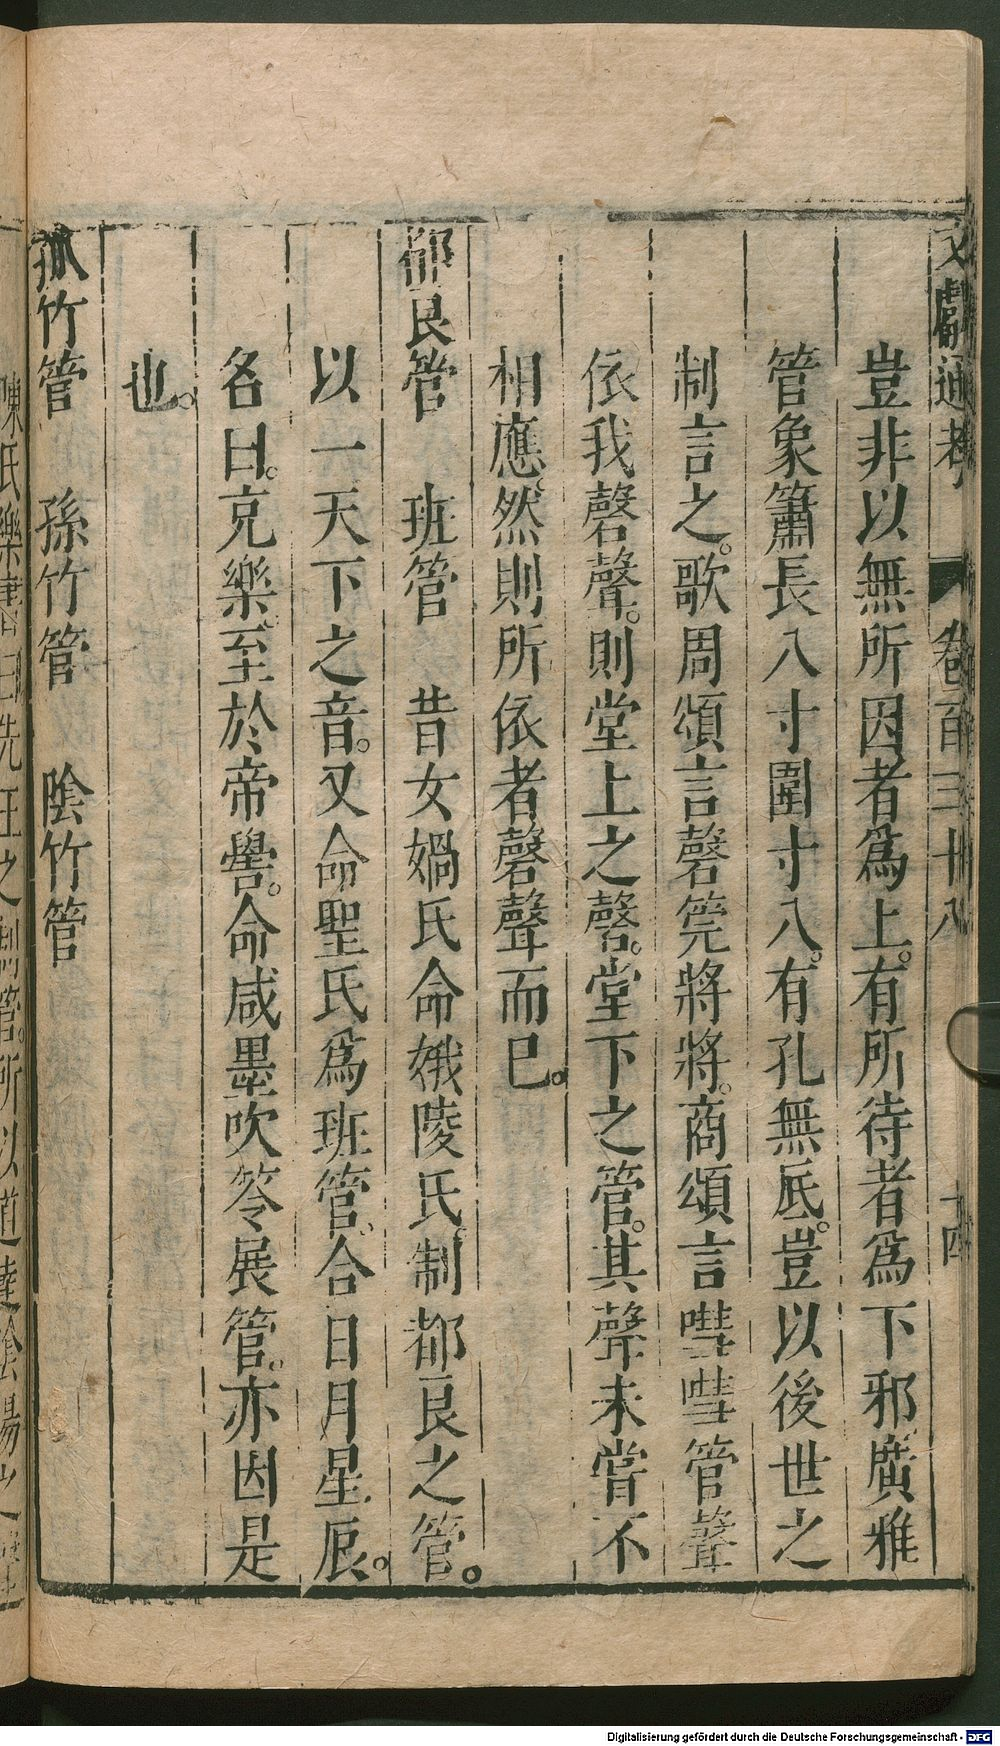 文獻通考 卷百三十八 十四
豈非以無所因者爲上。有所待者爲下邪廣雅
管象簫長八寸圍寸八。有孔無底。豈以後世之
制言之。歌周頌言磬筦將將。商頌言嘒嘒管聲
依我磬聲。則堂上之磬。堂下之管。其聲未嘗不
相應。然則所依者磬聲而已。
都良管 班管 昔女媧氏命娥陵氏。制都良之管。
以一天下之音。又命聖氏爲班管、合日月星辰。
名曰。充樂、至於帝嚳。命咸墨吹笭展管。亦因是
也。
孤竹管 孫竹管 陰竹管
陳氏樂書曰先王之制管。所以道達陰陽之聲
Digitalisierung gefördert durch die Deutsche Forschungsgemeinschaft - DFG